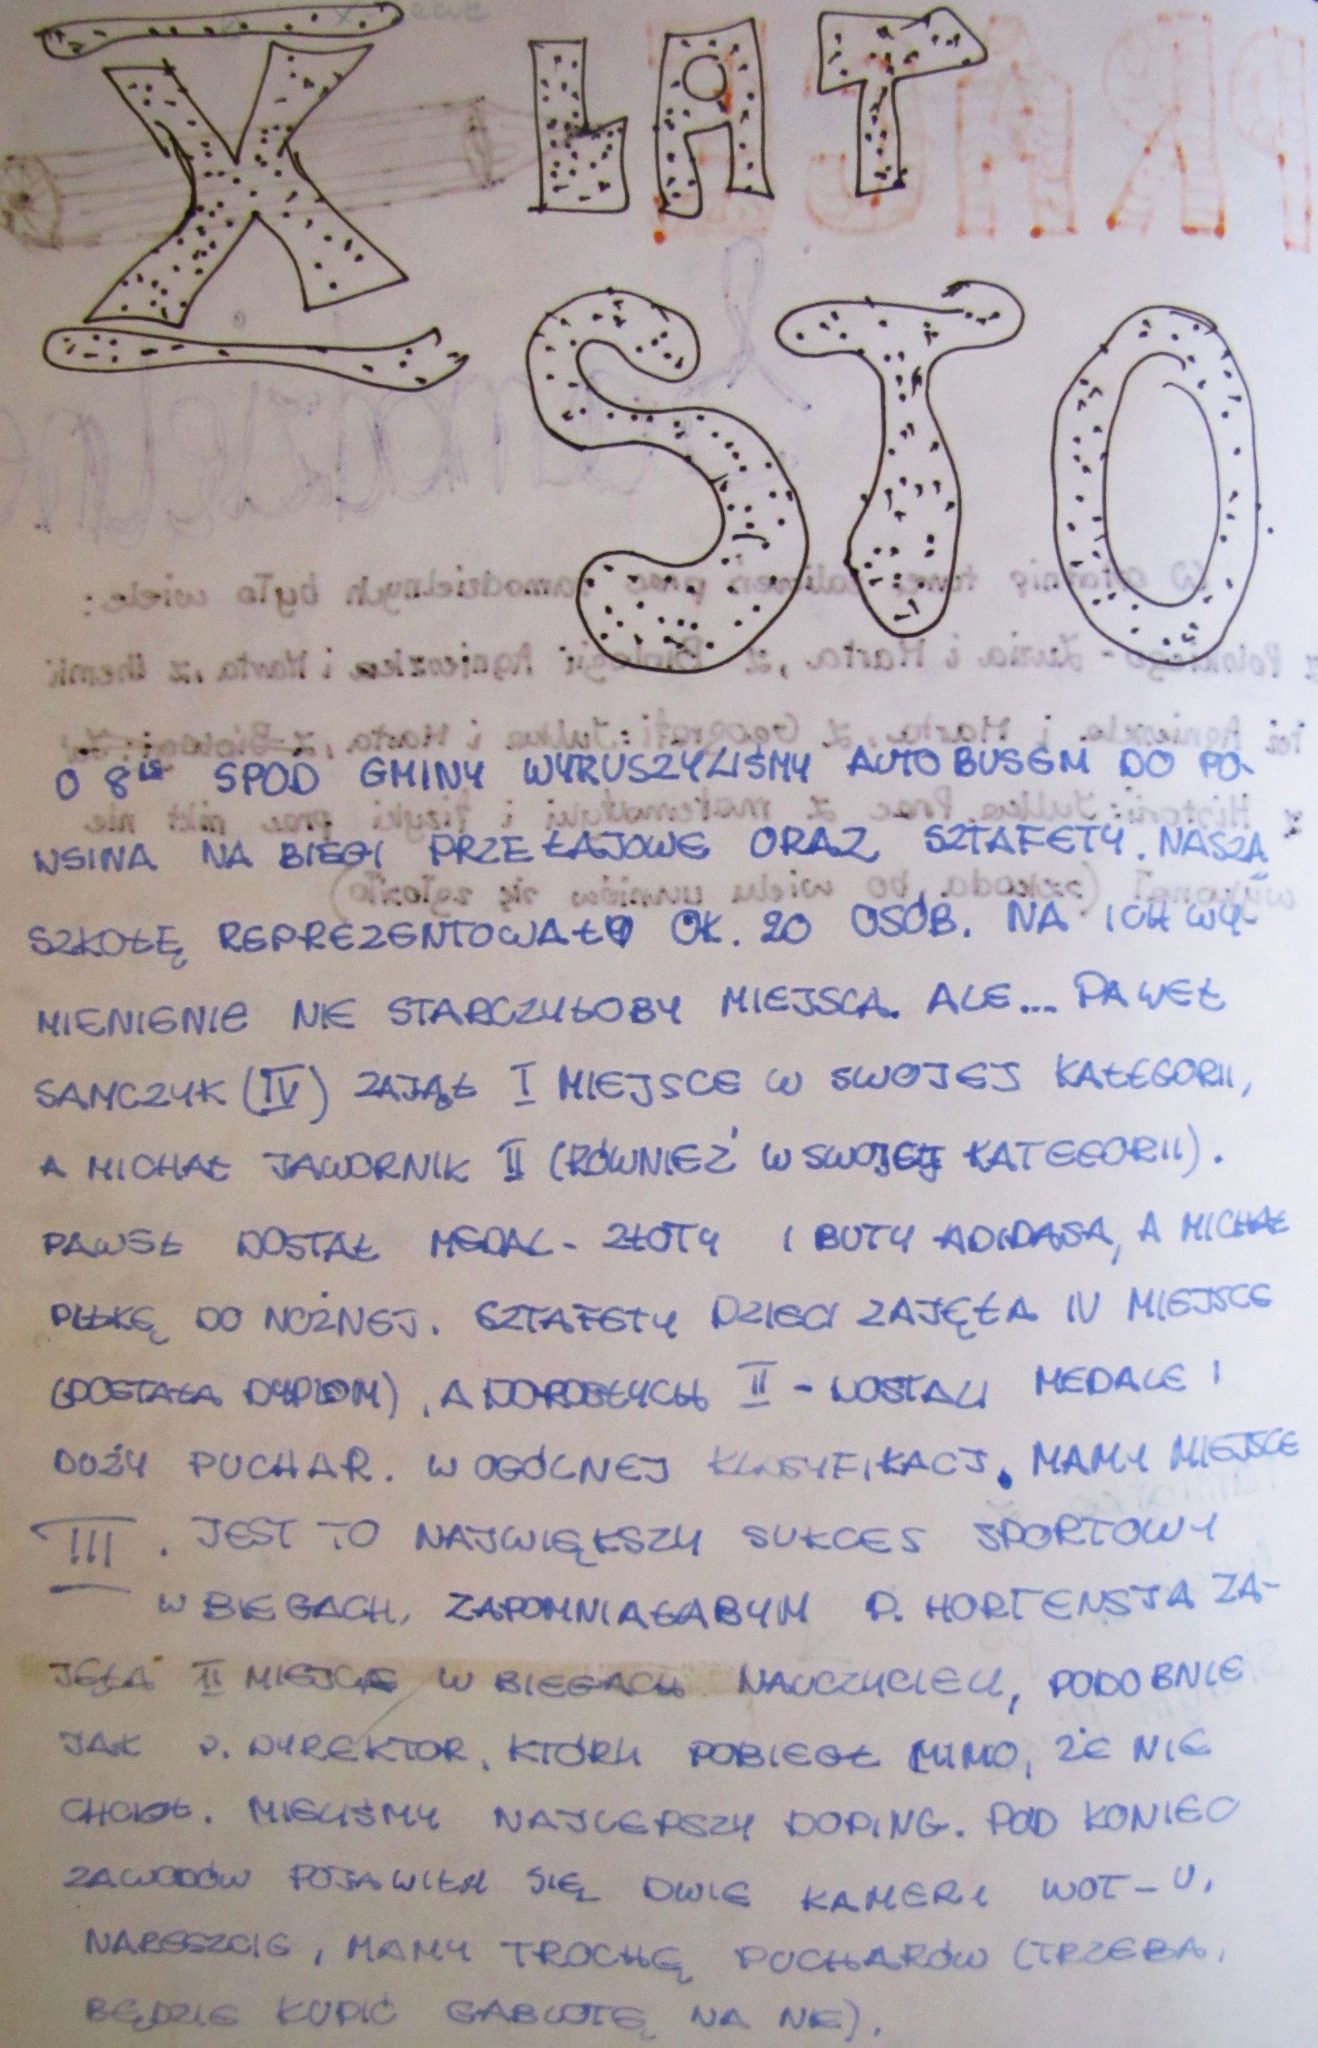 X LAT
STO
O 8¹⁵ SPOD GMINY WYRUSZYLIŚMY AUTOBUSEM DO PO-
WSINA NA BIEGI PRZEŁAJOWE ORAZ SZTAFETY. NASZĄ
SZKOŁĘ REPREZENTOWAŁO OK. 20 OSÓB. NA ICH WY-
MIENIENIE NIE STARCZYŁOBY MIEJSCA. ALE... PAWEŁ
SAMCZYK (IV) ZAJĄŁ I MIEJSCE W SWOJEJ KATEGORII,
A MICHAŁ JAWORNIK II (RÓWNIEŻ W SWOJEJ KATEGORII).
PAWEŁ DOSTAŁ MEDAL - ZŁOTY I BUTY ADIDASA, A MICHAŁ
PIŁKĘ DO NOŻNEJ. SZTAFETY DZIECI ZAJĘŁA IV MIEJSCE
(DOSTAŁA DYPLOM), A DOROSŁYCH II - DOSTALI MEDALE I
DUŻY PUCHAR. W OGÓLNEJ KLASYFIKACJI MAMY MIEJSCE
III. JEST TO NAJWIĘKSZY SUKCES SPORTOWY
W BIEGACH. ZAPOMNIAŁABYM P. HORTENSJA ZA-
JĘŁA II MIEJSCE W BIEGACH NAUCZYCIELI, PODOBNIE
JAK P. DYREKTOR, KTÓRY POBIEGŁ MIMO, ŻE NIE
CHCIAŁ. MIELIŚMY NAJLEPSZY DOPING. POD KONIEC
ZAWODÓW POJAWIŁY SIĘ DWIE KAMERY WOT-U.
NARESZCIE, MAMY TROCHĘ PUCHARÓW (TRZEBA
BĘDZIE KUPIĆ GABLOTĘ NA NIE).